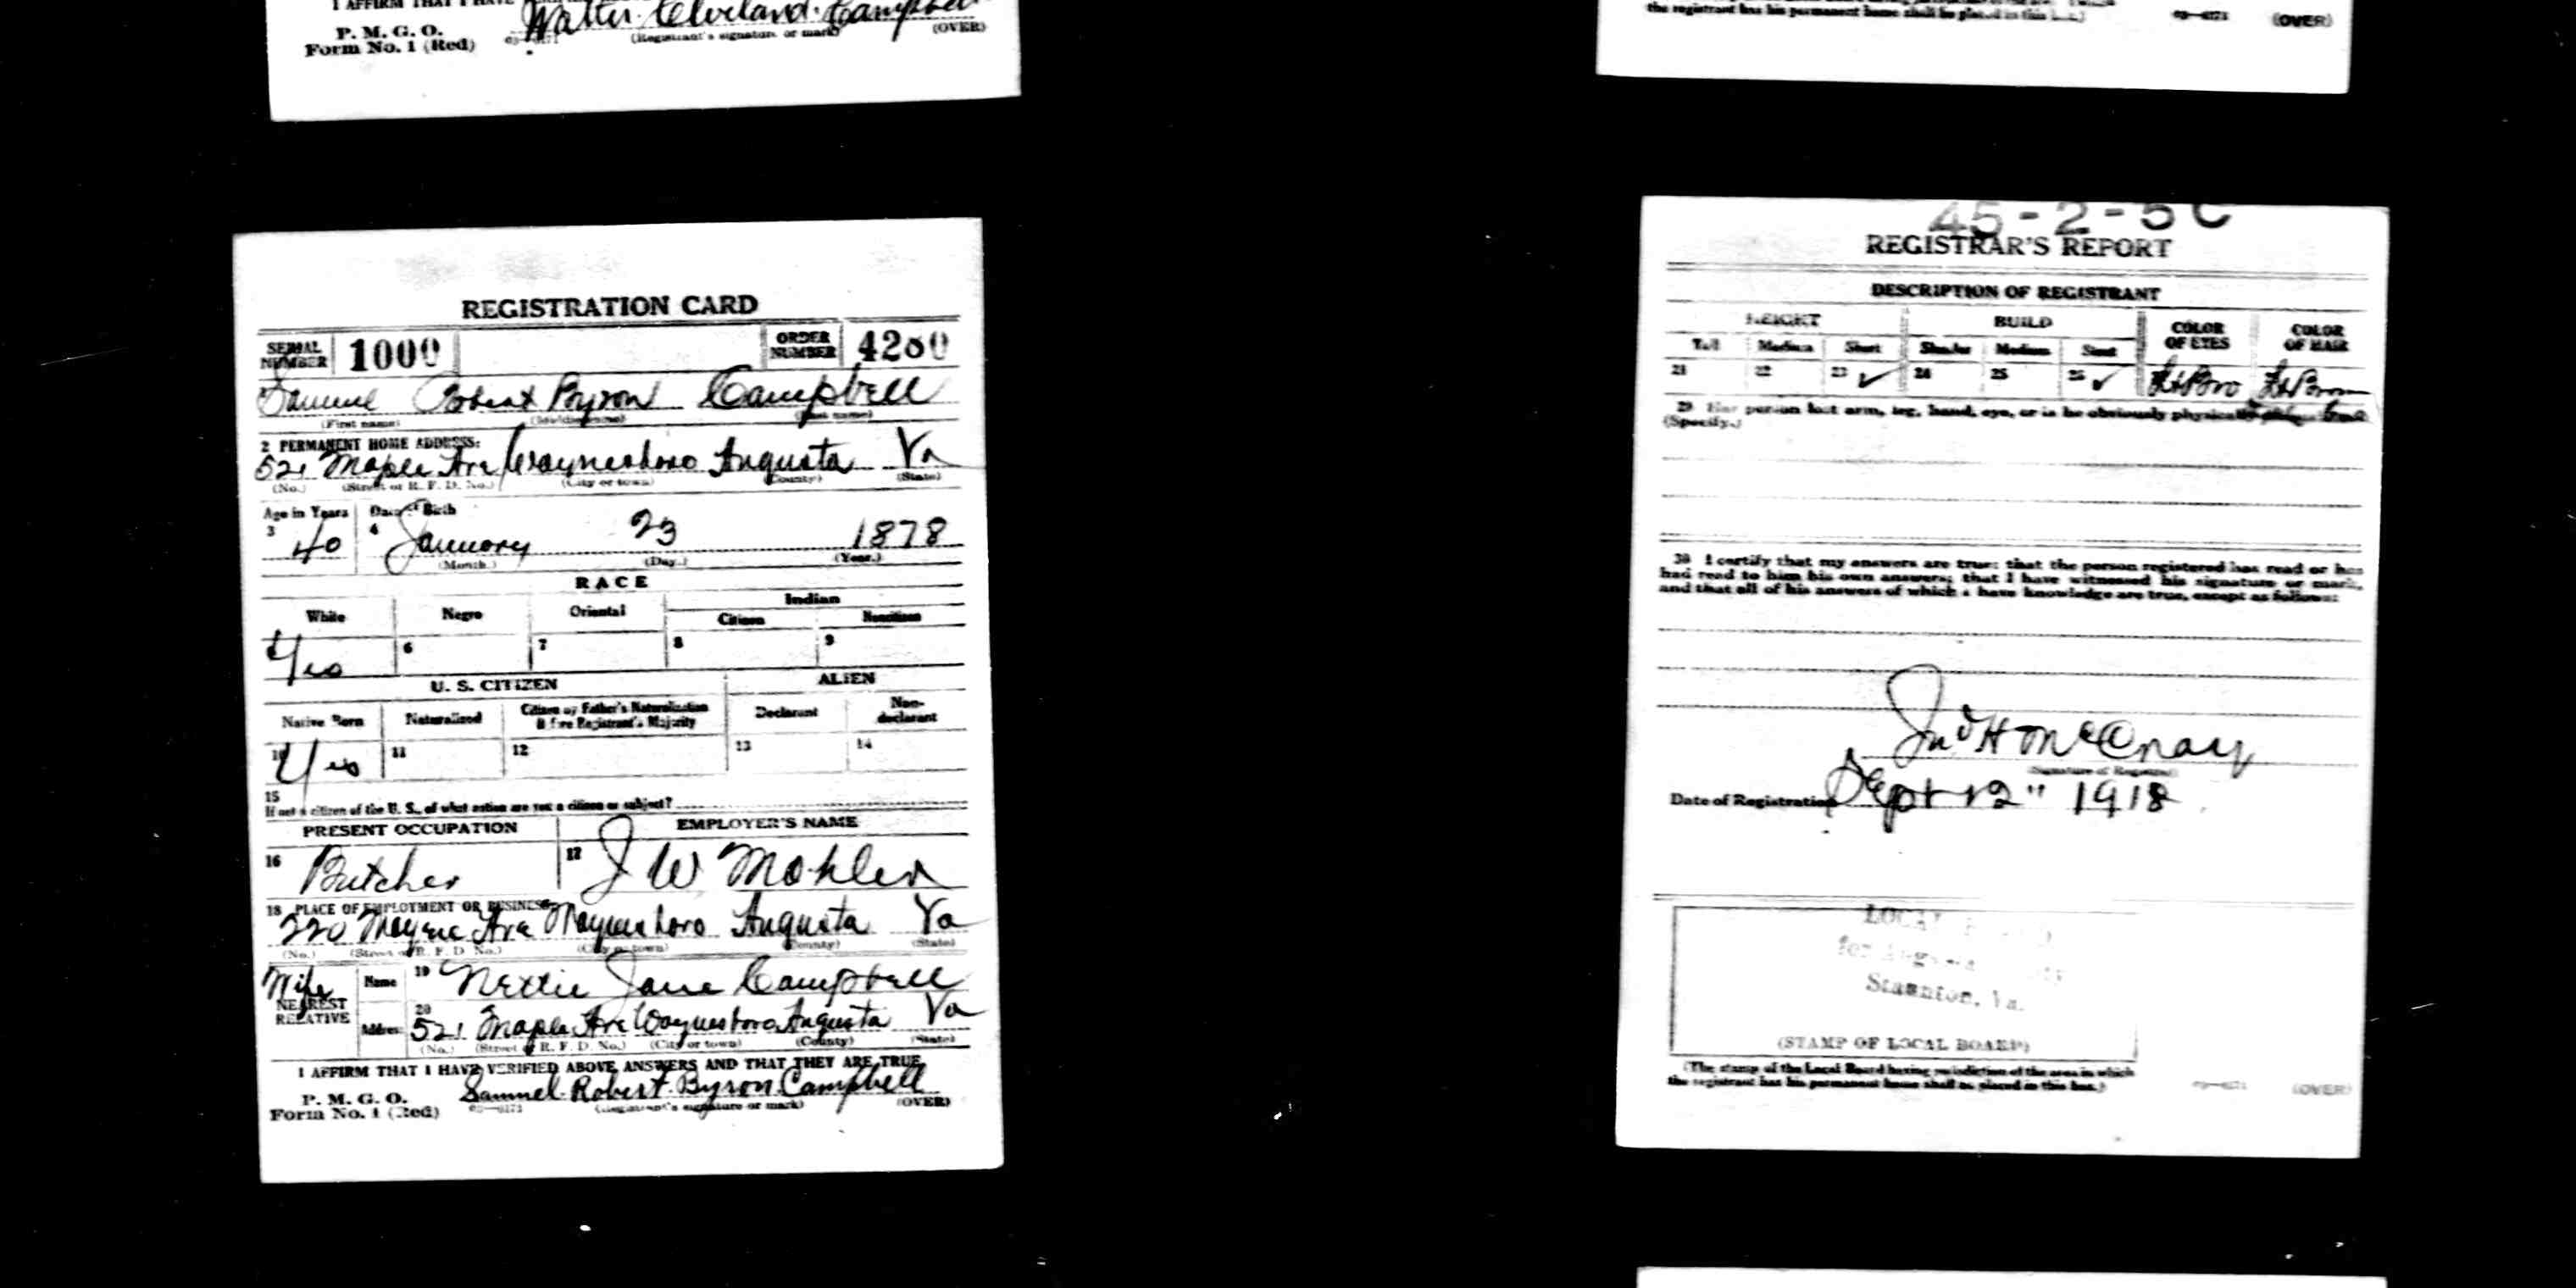 I AFFIRM THAT I HAVE
Walter Cleveland Campbell
P. M. G. O.
Form No. 1 (Red)
(Registrant's signature or mark)
(OVER)
the registrant has his permanent home shall be placed in this box.)
03—6171 (OVER)
REGISTRATION CARD
SERIAL NUMBER 1000 ORDER NUMBER 4280
Samuel Robert Byron Campbell
(First name) (Middle name) (Last name)
2 PERMANENT HOME ADDRESS:
521 Maple Ave Waynesboro Augusta Va
(No.) (Street or R. F. D. No.) (City or town) (County) (State)
Age in Years Date of Birth
3 40 4 January 23 1878
(Month.) (Day.) (Year.)
RACE
White Negro Oriental Indian
Citizen Noncitizen
Yes 6 7 8 9
U. S. CITIZEN ALIEN
Native Born Naturalized Citizen by Father's Naturalization Before Registrant's Majority Declarant Non-declarant
10 Yes 11 12 13 14
15
If not a citizen of the U. S., of what nation are you a citizen or subject?
PRESENT OCCUPATION EMPLOYER'S NAME
16 Butcher 17 J W Mohler
18 PLACE OF EMPLOYMENT OR BUSINESS:
220 Ave Waynesboro Augusta Va
(No.) (Street or R. F. D. No.) (City or town) (County) (State)
Wife
NEAREST RELATIVE
Name 19 Nettie Jane Campbell
Address 20 521 Maple Ave Waynesboro Augusta Va
(No.) (Street or R. F. D. No.) (City or town) (County) (State)
I AFFIRM THAT I HAVE VERIFIED ABOVE ANSWERS AND THAT THEY ARE TRUE
P. M. G. O.
Form No. 1 (Red)
Samuel Robert Byron Campbell
03—6171 (Registrant's signature or mark) (OVER)
45-2-5 C
REGISTRAR'S REPORT
DESCRIPTION OF REGISTRANT
HEIGHT BUILD COLOR OF EYES COLOR OF HAIR
Tall Medium Short Slender Medium Stout
21 22 23 ✓ 24 25 26 ✓ Lt Bro Lt Brown
29 Has person lost arm, leg, hand, eye, or is he obviously physically
(Specify.)
30 I certify that my answers are true; that the person registered has read or has
had read to him his own answers; that I have witnessed his signature or mark,
and that all of his answers of which I have knowledge are true, except as follows:
Jno H McCray
(Signature of Registrar)
Date of Registration Sept 12" 1918
LOCAL BOARD
for Augusta
Staunton, Va.
(STAMP OF LOCAL BOARD)
(The stamp of the Local Board having jurisdiction of the area in which
the registrant has his permanent home shall be placed in this box.)
03—6171 (OVER)